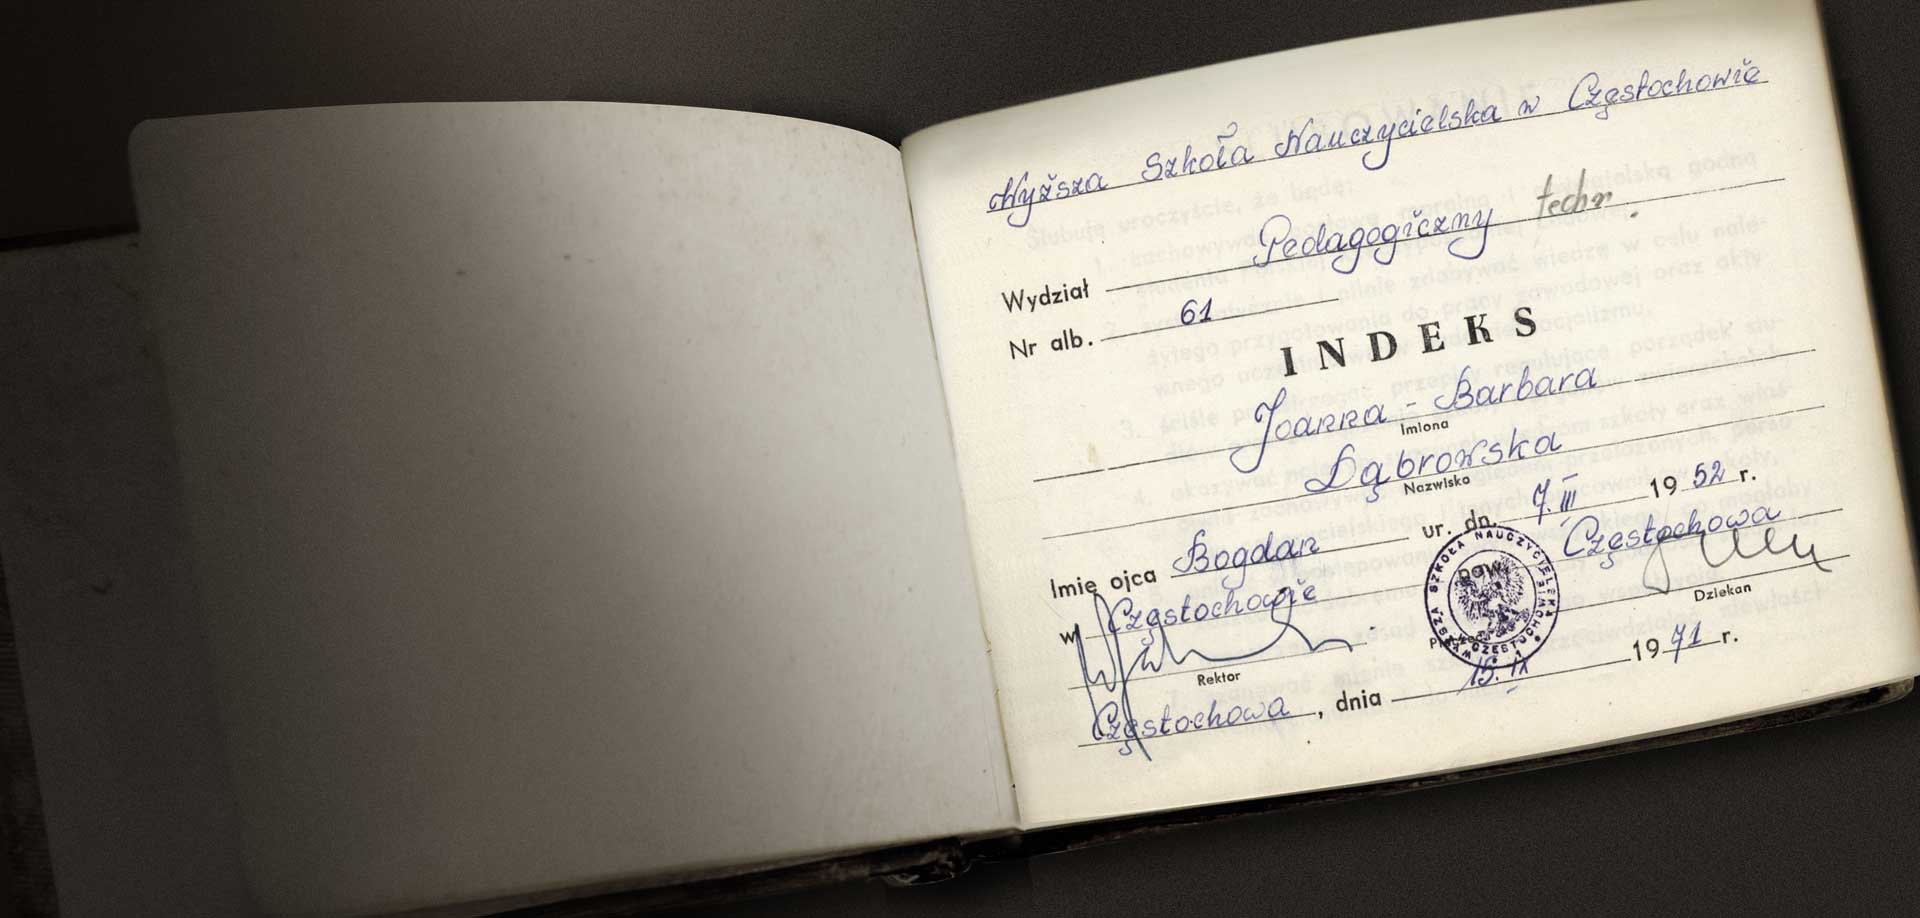 Wyższa Szkoła Nauczycielska w Częstochowie
Wydział Pedagogiczny techn.
Nr alb. 61
INDEKS
Joanna - Barbara
Imiona
Dąbrowska
Nazwisko
Imię ojca Bogdan ur. dn. 7.III 1952 r.
w Częstochowie pow. Częstochowa
Rektor
Dziekan
WYŻSZA SZKOŁA NAUCZYCIELSKA W CZĘSTOCHOWIE
Częstochowa, dnia 15.IX 1971 r.